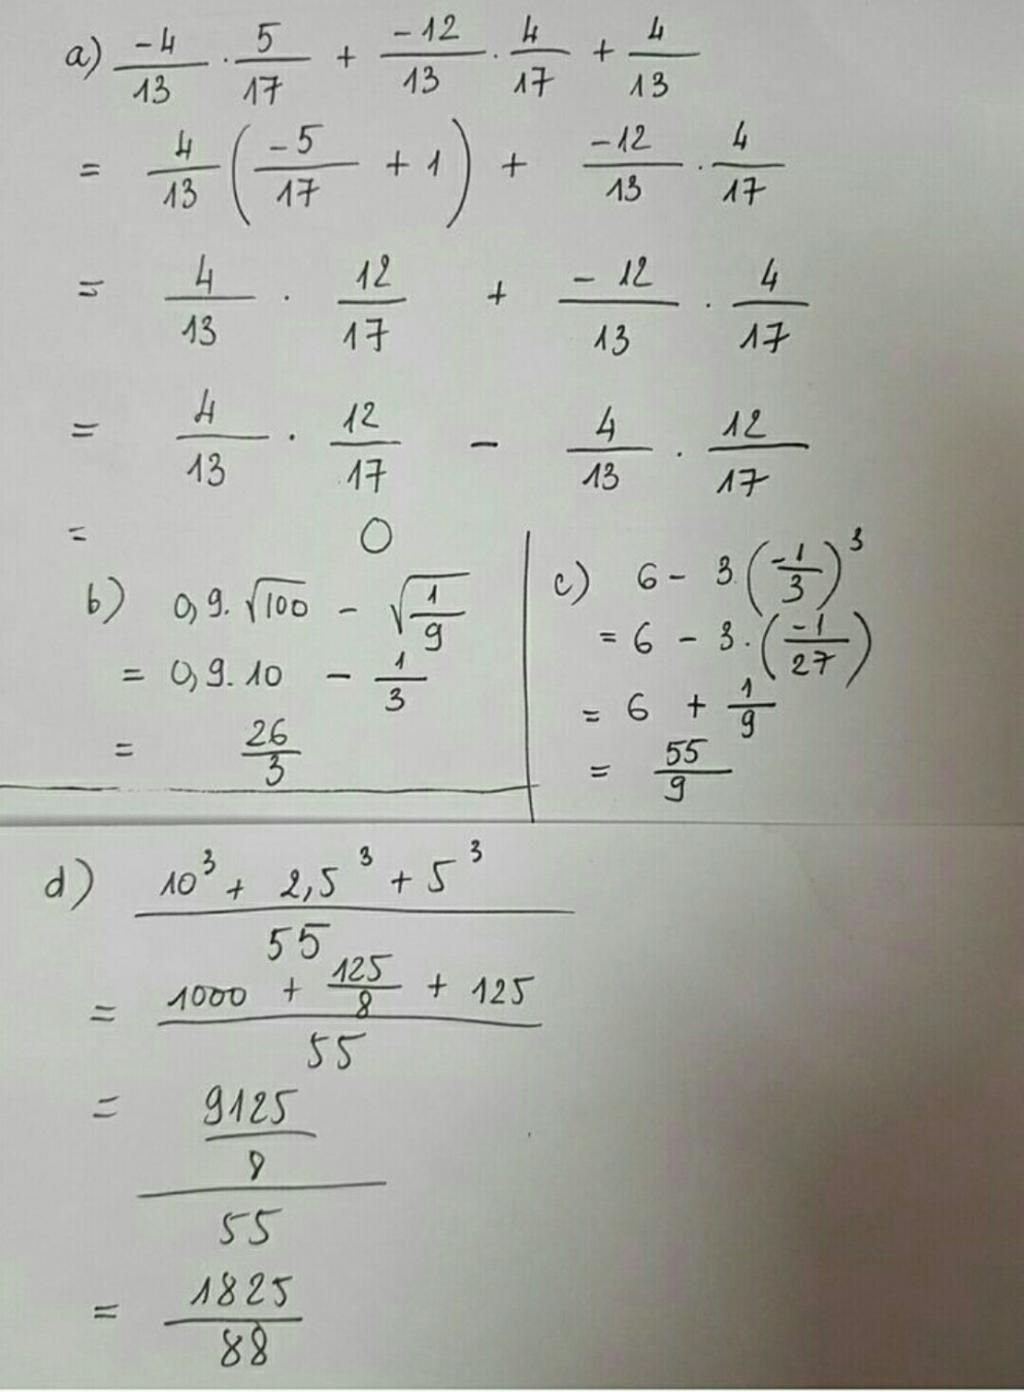 a) -4/13 . 5/17 + -12/13 . 4/17 + 4/13
= 4/13 (-5/17 + 1) + -12/13 . 4/17
= 4/13 . 12/17 + -12/13 . 4/17
= 4/13 . 12/17 - 4/13 . 12/17
= 0
b) 0,9. √100 - √(1/9)
= 0,9. 10 - 1/3
= 26/3
c) 6 - 3. (-1/3)³
= 6 - 3. (-1/27)
= 6 + 1/9
= 55/9
d) (10³ + 2,5³ + 5³)/55
= (1000 + 125/8 + 125)/55
= (9125/8)/55
= 1825/88